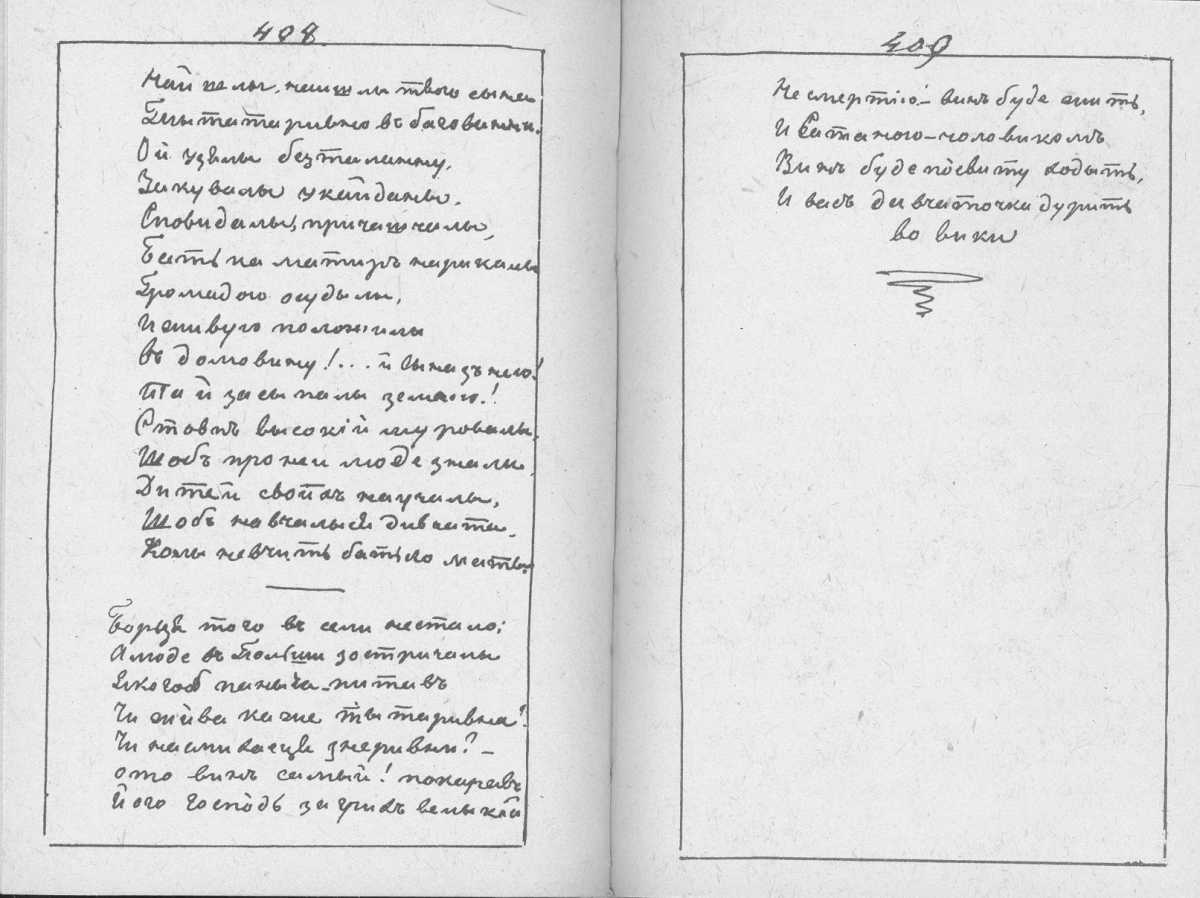 408
Найшлы, найшлы твого сына
Тытатаривно въ баговиньни.
Ой узялы безталанну,
Закувалы укайданы.
Сповидалы, причащчалы,
Батька матиръ нарикалы
Громадою осудылы,
И живую положилы
въ домовину!... й сына зъ нею!
Та й засыпалы землею!
Стовпъ высокій муровалы,
Щобъ про неи люде зналы,
Дитей своїхъ научалы,
Щобъ навчалыся дивчата,
Колы невчить батько маты.
Борьзя того въ сели нестало;
А люде въ Польши зостричалы
Якогось паныча-питавъ
Чи жива каже тытаривна?
Чи насмихаецця знеривни? –
ото винъ самый! покаравъ
Його Господь за грихъ велыкій
409
Не смертію! – винъ буде жить,
И Сатаною-чоловикомъ
Винъ буде по свиту ходыть,
И васъ дивчаточка дурить
во вики